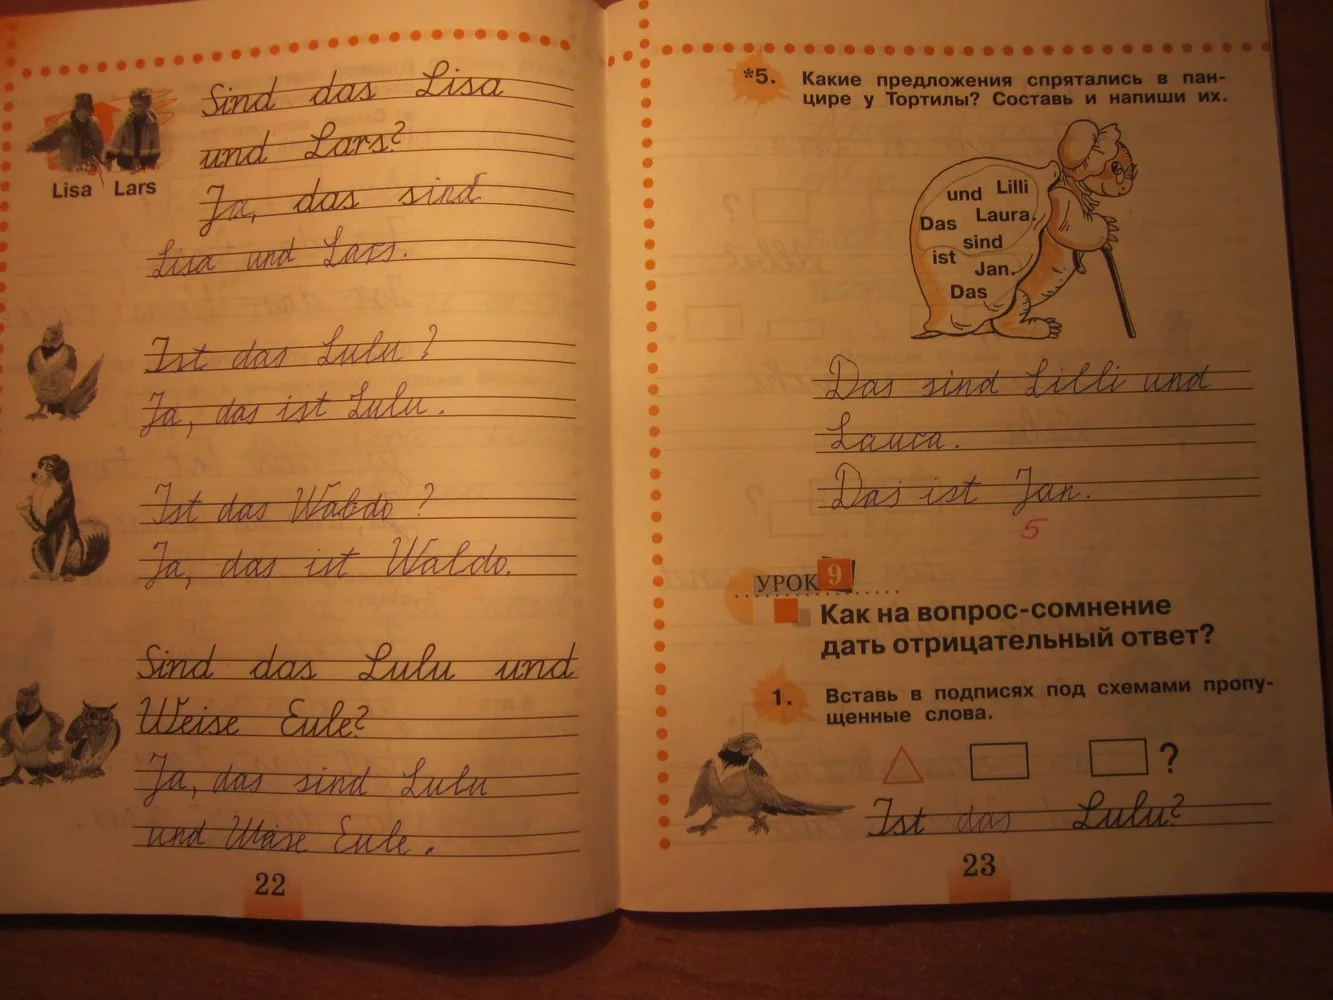 Sind das Lisa
und Lars?
Lisa Lars
Ja, das sind
Lisa und Lars.
Ist das Lulu?
Ja, das ist Lulu.
Ist das Waldo?
Ja, das ist Waldo.
Sind das Lulu und
Weise Eule?
Ja, das sind Lulu
und Weise Eule.
22
*5. Какие предложения спрятались в пан-
цире у Тортилы? Составь и напиши их.
und Lilli
Das Laura.
sind
ist Jan.
Das
Das sind Lilli und
Laura.
Das ist Jan.
5
УРОК 9
Как на вопрос-сомнение
дать отрицательный ответ?
1. Вставь в подписях под схемами пропу-
щенные слова.
?
Ist das Lulu?
23